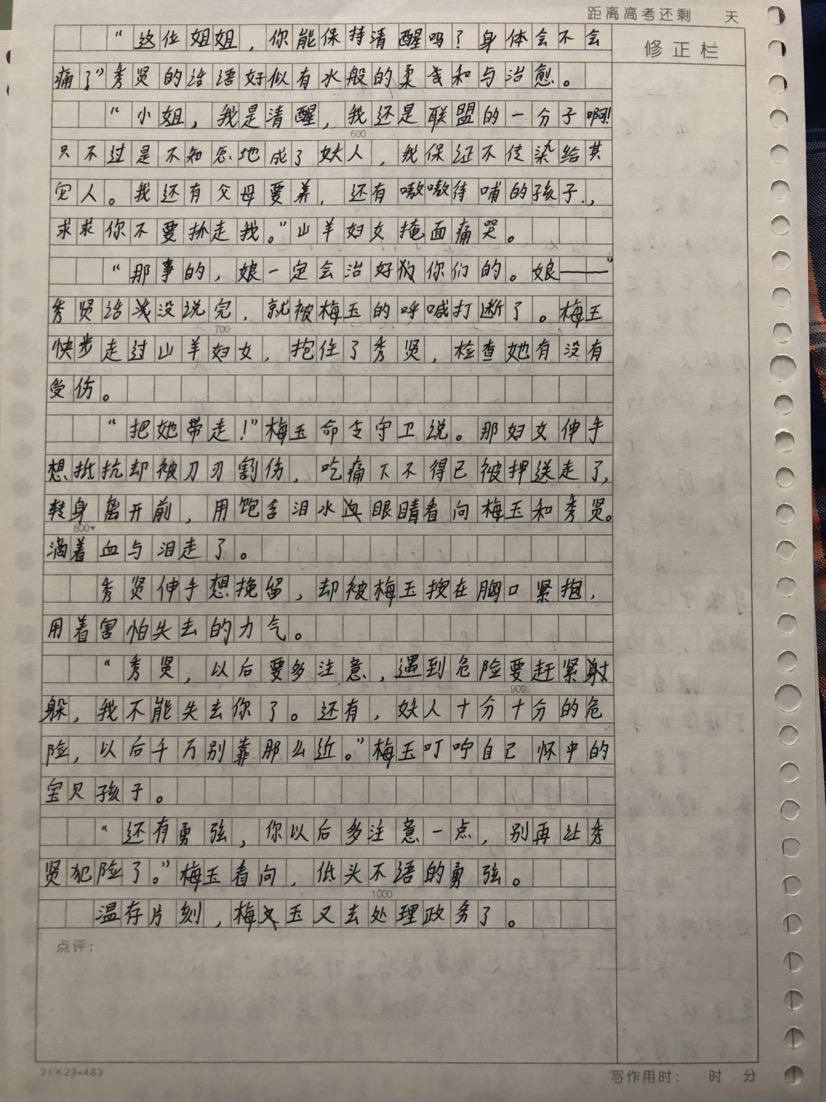 距离高考还剩 天
修正栏
“这位姐姐，你能保持清醒吗？身体会不会
痛？”秀贤的话语好似有水般的柔和与治愈。
“小姐，我是清醒，我还是联盟的一分子啊！
600
只不过是不知怎地成了妖人，我保证不传染给其
它人。我还有父母要养，还有嗷嗷待哺的孩子，
求求你不要抓走我。”山羊妇女掩面痛哭。
“那事的，娘一定会治好你们的。娘——”
秀贤话没说完，就被梅玉的呼喊打断了。梅玉
700
快步走过山羊妇女，抱住了秀贤，检查她有没有
受伤。
“把她带走！”梅玉命令守卫说。那妇女伸手
想抵抗却被刀刃割伤，吃痛下不得已被押送走了，
转身离开前，用饱含泪水的眼睛看向梅玉和秀贤。
800
滴着血与泪走了。
秀贤伸手想挽留，却被梅玉按在胸口紧抱，
用着害怕失去的力气。
“秀贤，以后要多注意，遇到危险要赶紧
900
躲，我不能失去你了。还有，妖人十分十分的危
险，以后千万别靠那么近。”梅玉叮咛自己怀中的
宝贝孩子。
“还有勇强，你以后多注意一点，别再让秀
贤犯险了。”梅玉看向，低头不语的勇强。
1000
温存片刻，梅玉又去处理政务了。
点评：
21×23=483
写作用时： 时 分